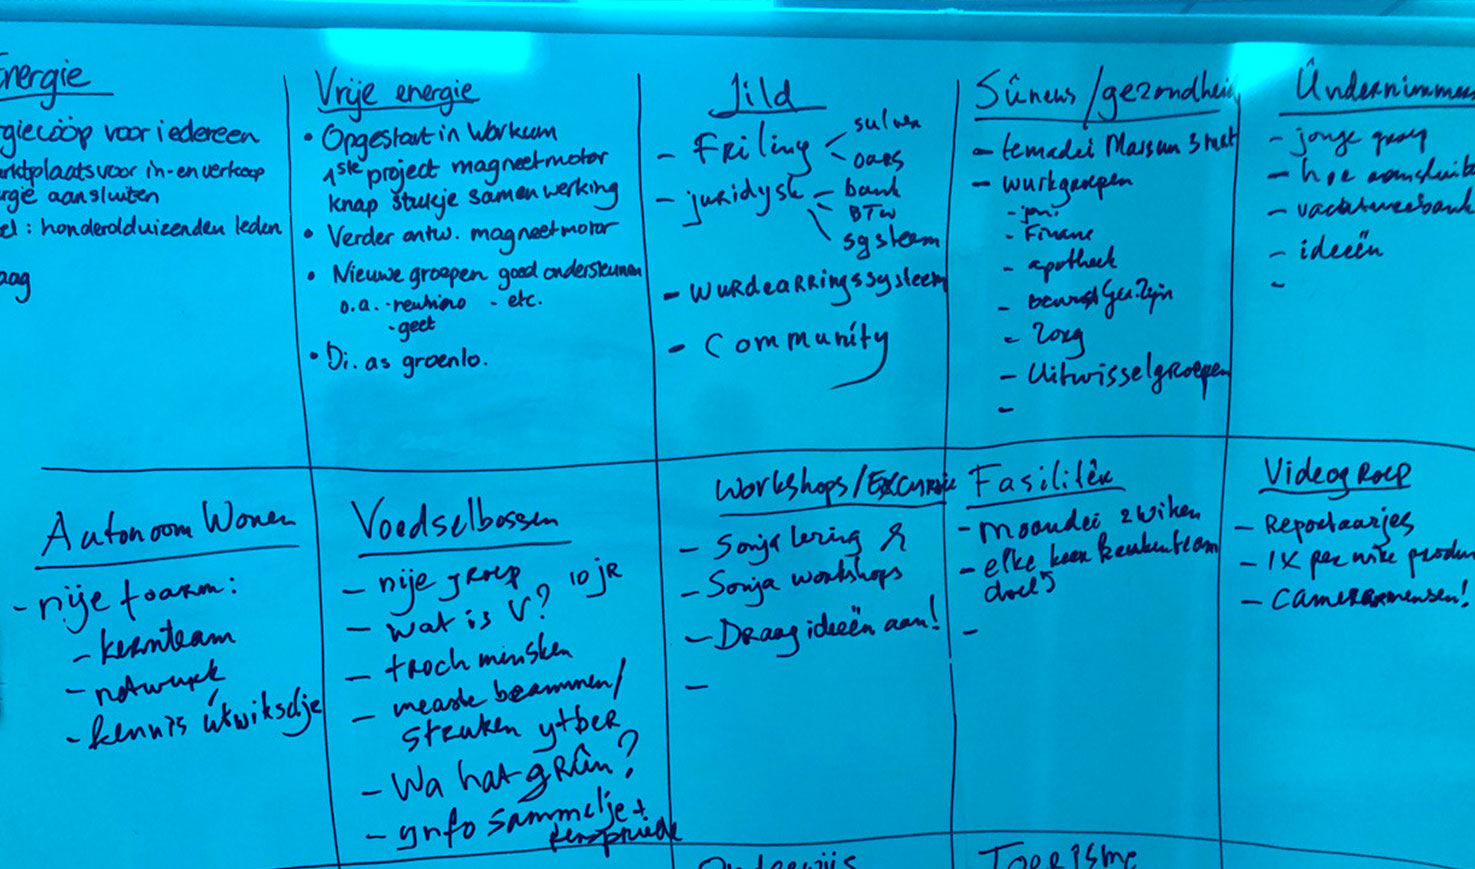 nergie
giecöop voor iedereen
rktplaats voor in- en verkoop
rgie aansluiten
el: honderdduizenden leden
aag
Vrije energie
• Opgestart in Workum
1ste project magneetmotor
knap stukje samenwerking
• Verder ontw. magneetmotor
• Nieuwe groepen goed ondersteunen
o.a. - - etc.
- geet
• Di. as groenlo.
Jild
- Friling
sulver
oars
- juridysk
bank
BTW
systeem
- wurdearringssysteem
- Community
Sûnens/gezondheid
- temadei
- wurkgroepen
- Finane
- apotheek
-
- zorg
- Uitwisselgroepen
-
Ûndernimmers
- jonge groep
- hoe
-
- ideeën
-
Autonoom Wonen
- nije foarm:
- kernteam
- netwurk
- kennis útwikselje
Voedselbossen
- nije groep
- wat is V? 10 jR
- troch minsken
- measte beammen/
struken ytber
- Wa hat grûn?
- ynfo sammelje +
Workshops/Excursie
- Sonja lering
- Sonja workshops
- Draag ideeën aan!
-
Fasilitêr
- moandei 2 wiken
- elke keer keukenteam
-
Videogroep
- Reportaazjes
- 1x per wike produ
- cameramensen!
Onderwijs
Toerisme